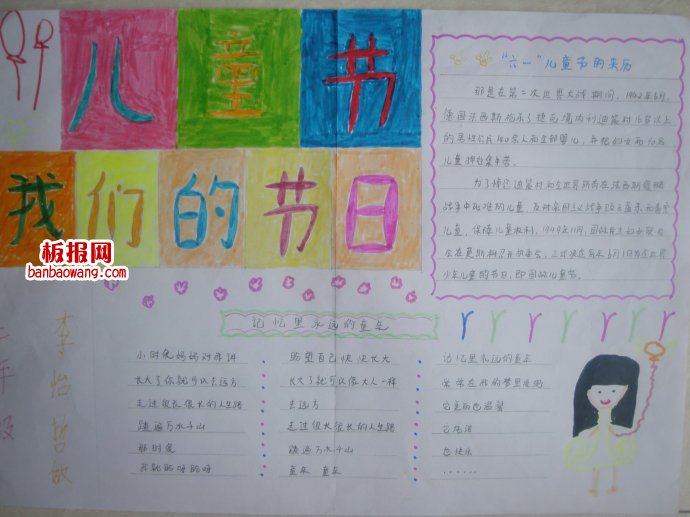 儿童节
我们的节日
板报网
banbaowang.com
“六一”儿童节的来历
那是在第二次世界大战期间，1942年6月，
德国法西斯枪杀了捷克境内利迪策村16岁以上
的男性公民140余人和全部婴儿，并把妇女和90名
儿童押往集中营。
为了悼念迪策村和全世界所有在法西斯侵略
战争中死难的儿童，反对帝国主义战争贩子虐杀和毒害
儿童，保障儿童权利，1949年11月，国际民主妇女联合
会在莫斯科召开执委会，正式决定每年6月1日为全世界
少年儿童的节日，即国际儿童节。
记忆里永远的童年
小时侯妈妈对我讲
长大了你就可以去远方
走过很长很长的人生路
踏遍万水千山
那时侯
我就盼呀盼呀
盼望自己快快长大
长大了就可以像大人一样
去远方
走过很长很长的人生路
踏遍万水千山
童年 童年
记忆里永远的童年
常常在我的梦里走过
它美丽也温馨
它纯洁
也快乐
……
年级
李怡哲